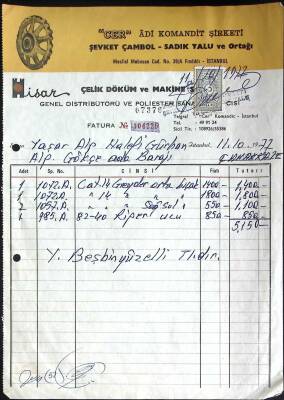 "CER" ADİ KOMANDİT ŞİRKETİ
ŞEVKET ÇAMBOL - SADIK YALU ve Ortağı
Meclisi Mebusan Cad. No. Fındıklı - İSTANBUL
Hisar
ÇELİK DÖKÜM ve MAKİNE
GENEL DİSTRİBÜTÖRÜ VE POLİESTER SANAYİ
67376
FATURA № 104220
Telgraf "Cer" Komandit - İstanbul
Tel. : 49 91 34
Sicil Tic. : 108926/55386
Yaşar Alp Halefi Gürhan İstanbul, 11.10.1977
Alp. Gökçe ada Barajı ÇANAKKALE
Adet Sp. No. CİNSİ Fiat Tutarı
1 1072.A. Cat.14 Greyder orta bıçak 1400- 1,400-
1 1072.A. " 14 " " " 1800- 1,800-
2 1057.A. " " " Sağ sol 550- 1,100-
1 985.A. 82-40 Riperi ucu 850- 850-
5,150-
Y. Beşbinyüzelli Tl.dır.